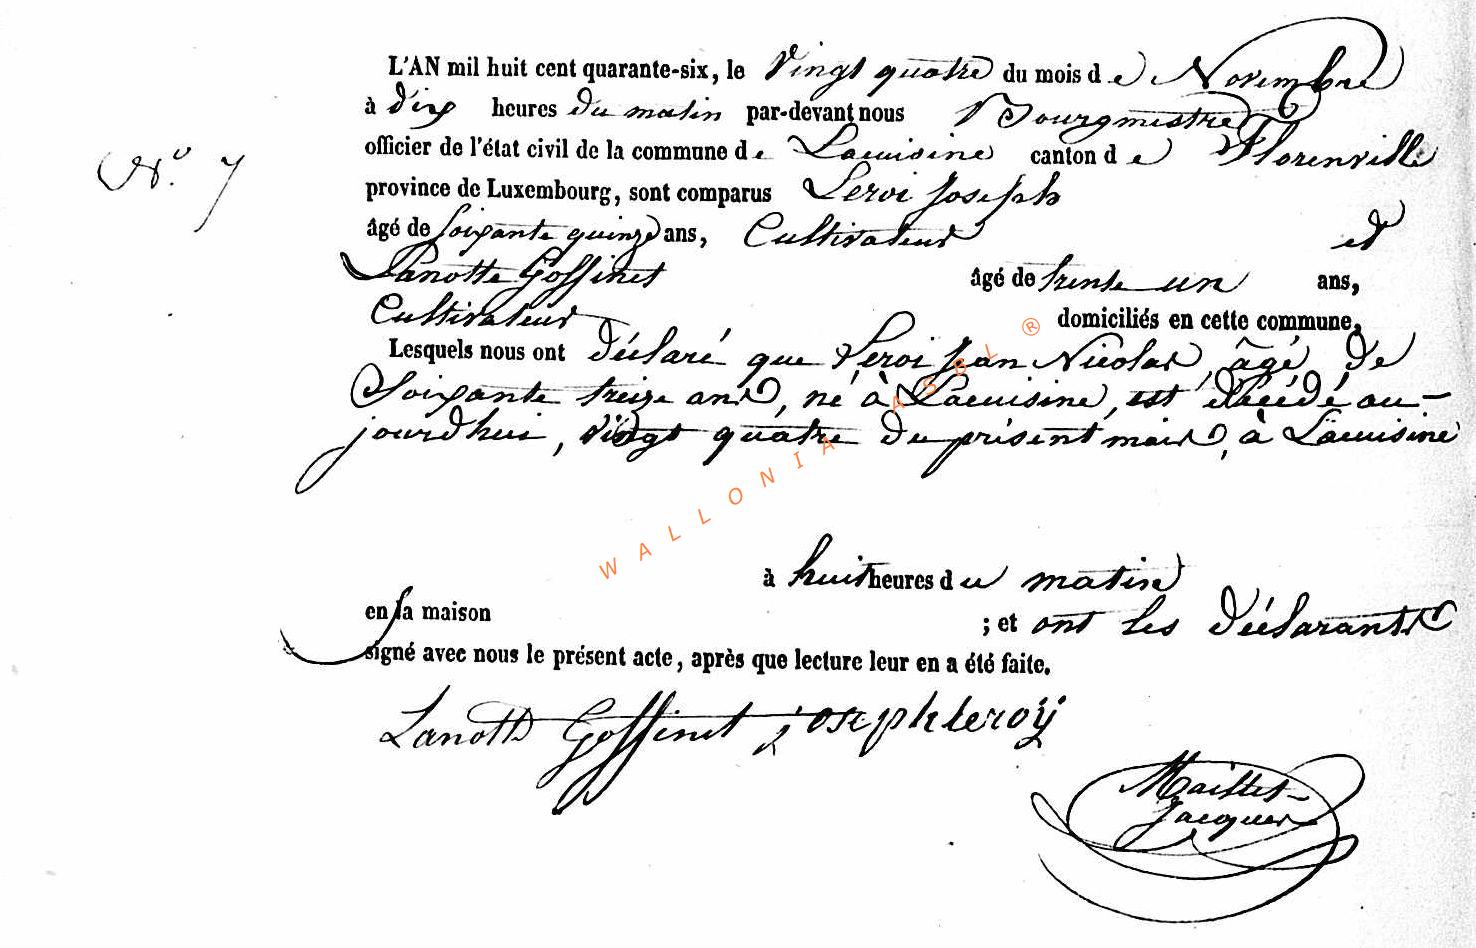 L'AN mil huit cent quarante-six, le Vingt quatre du mois de Novembre
à dix heures du matin par-devant nous Bourgmestre
N.º 7
officier de l'état civil de la commune de Lacuisine canton de Florenville
province de Luxembourg, sont comparus Leroi Joseph
âgé de soixante quinze ans, Cultivateur et
Lanotte Goffinet âgé de trente un ans,
Cultivateur domiciliés en cette commune,
Lesquels nous ont déclaré que Leroi Jean Nicolas, âgé de
soixante treize ans, né à Lacuisine, est décédé au-
jourdhui, vingt quatre du présent mois, à Lacuisine
à huit heures du matin
en sa maison ; et ont les déclarants
signé avec nous le présent acte, après que lecture leur en a été faite.
Lanotte Goffinet josephleroÿ
Maillet-
Jacques
WALLONIA ASBL ®